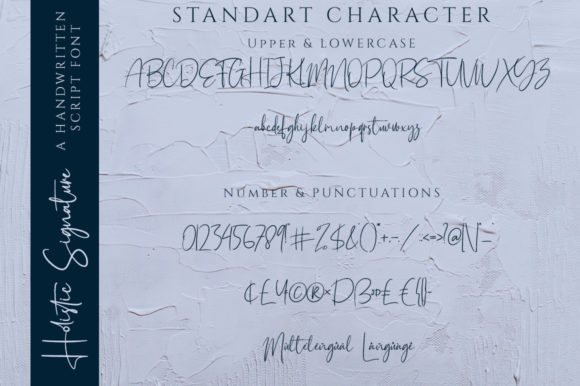 A HANDWRITTEN
SCRIPT FONT
Holistic Signature
STANDART CHARACTER
UPPER & LOWERCASE
ABCDEFGHIJKLMNOPQRSTUVWXYZ
abcdefghijklmnopqrstuvwxyz
NUMBER & PUNCTUATIONS
0123456789
Multelengual Langunge